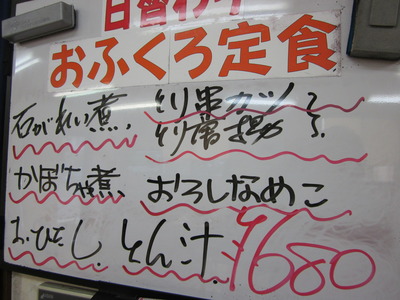 日替わり
おふくろ定食
石がれい煮、とり串カツ
とり唐揚
かぼちゃ煮 おろしなめこ
おひたし とん汁 ¥680